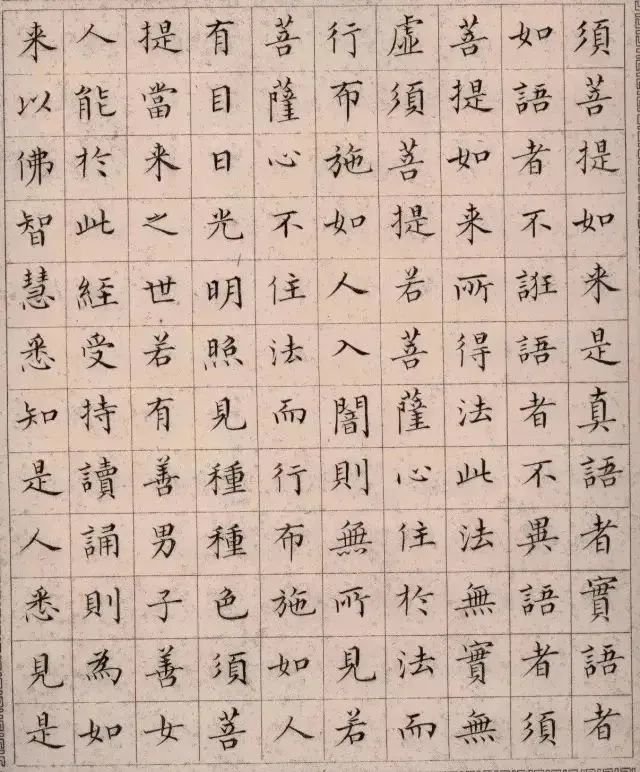 須菩提如来是真語者實語者
如語者不誑語者不異語者須
菩提如来所得法此法無實無
虛須菩提若菩薩心住於法而
行布施如人入闇則無所見若
菩薩心不住法而行布施如人
有目日光明照見種種色須菩
提當来之世若有善男子善女
人能於此經受持讀誦則為如
来以佛智慧悉知是人悉見是